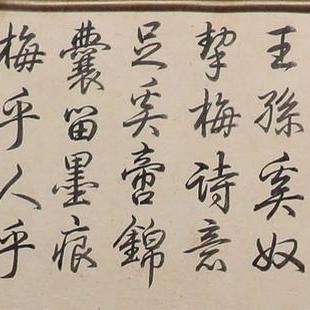 王孫奚奴
挈梅詩意
足奚啻錦
囊留墨痕
梅乎人乎